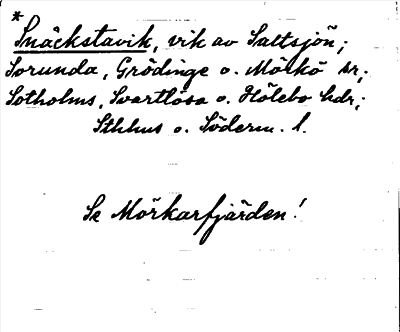 *
Snäckstavik, vik av Saltsjön;
Sorunda, Grödinge o. Mörkö snr;
Sotholms, Svartlösa o. Hölebo hdr;
Sthlms o. Söderm. l.
Se Mörkarfjärden!